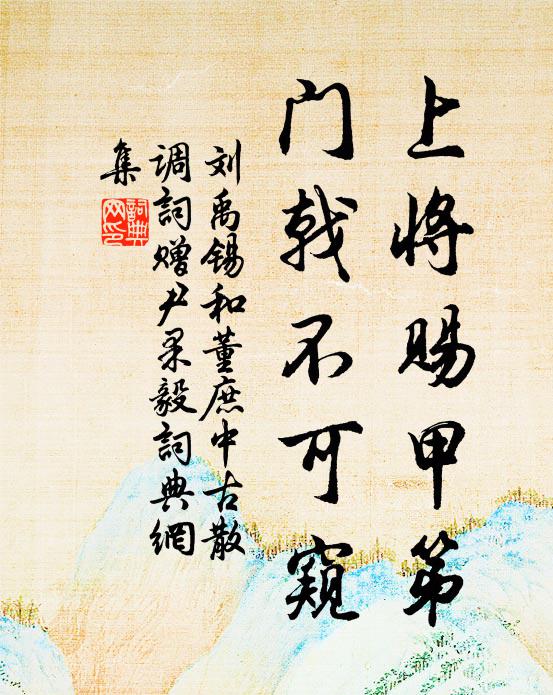 上将赐甲第
门戟不可窥
刘禹锡和董庶中古散
调词赠尹果毅词典網
集
詞典
网印